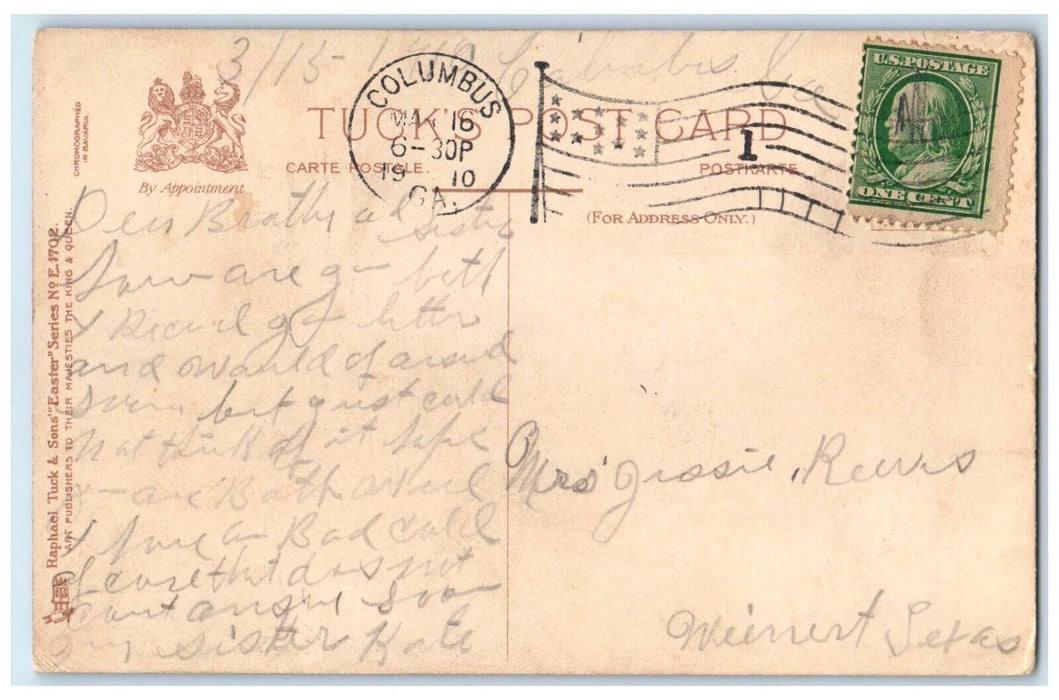 3/15- Columbus Ga
COLUMBUS
MAR 16
6-30P
19 10
GA.
1
U.S. POSTAGE
ONE CENT
TUCK'S POST CARD
CARTE POSTALE. POSTKARTE
(FOR ADDRESS ONLY.)
By Appointment
CHROMOGRAPHED
IN BAVARIA.
Raphael Tuck & Sons' "Easter" Series Nº E.1702.
ART PUBLISHERS TO THEIR MAJESTIES THE KING & QUEEN.
Dear Brother and sister
how are both
I Received letter
and would of
but just could
not think of it hope
are Both well
I have a Bad cold
of corse that does not
count answer soon
sister Kate
Mrs Jessie Reeves
Weinert Texas